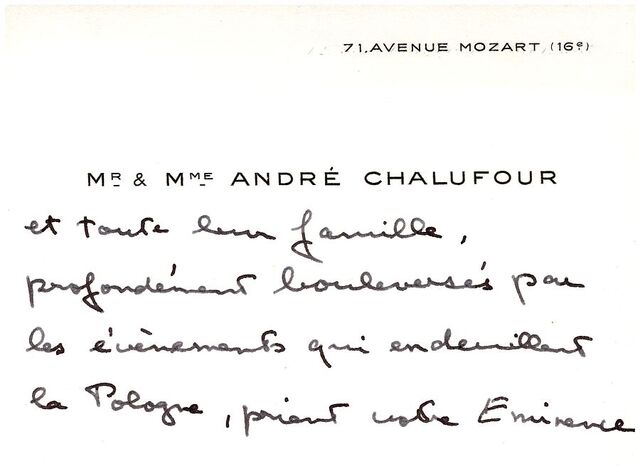 71, AVENUE MOZART (16e)
Mr & Mme ANDRÉ CHALUFOUR
et toute leur famille,
profondément bouleversés par
les évènements qui endeuillent
la Pologne, prient votre Eminence